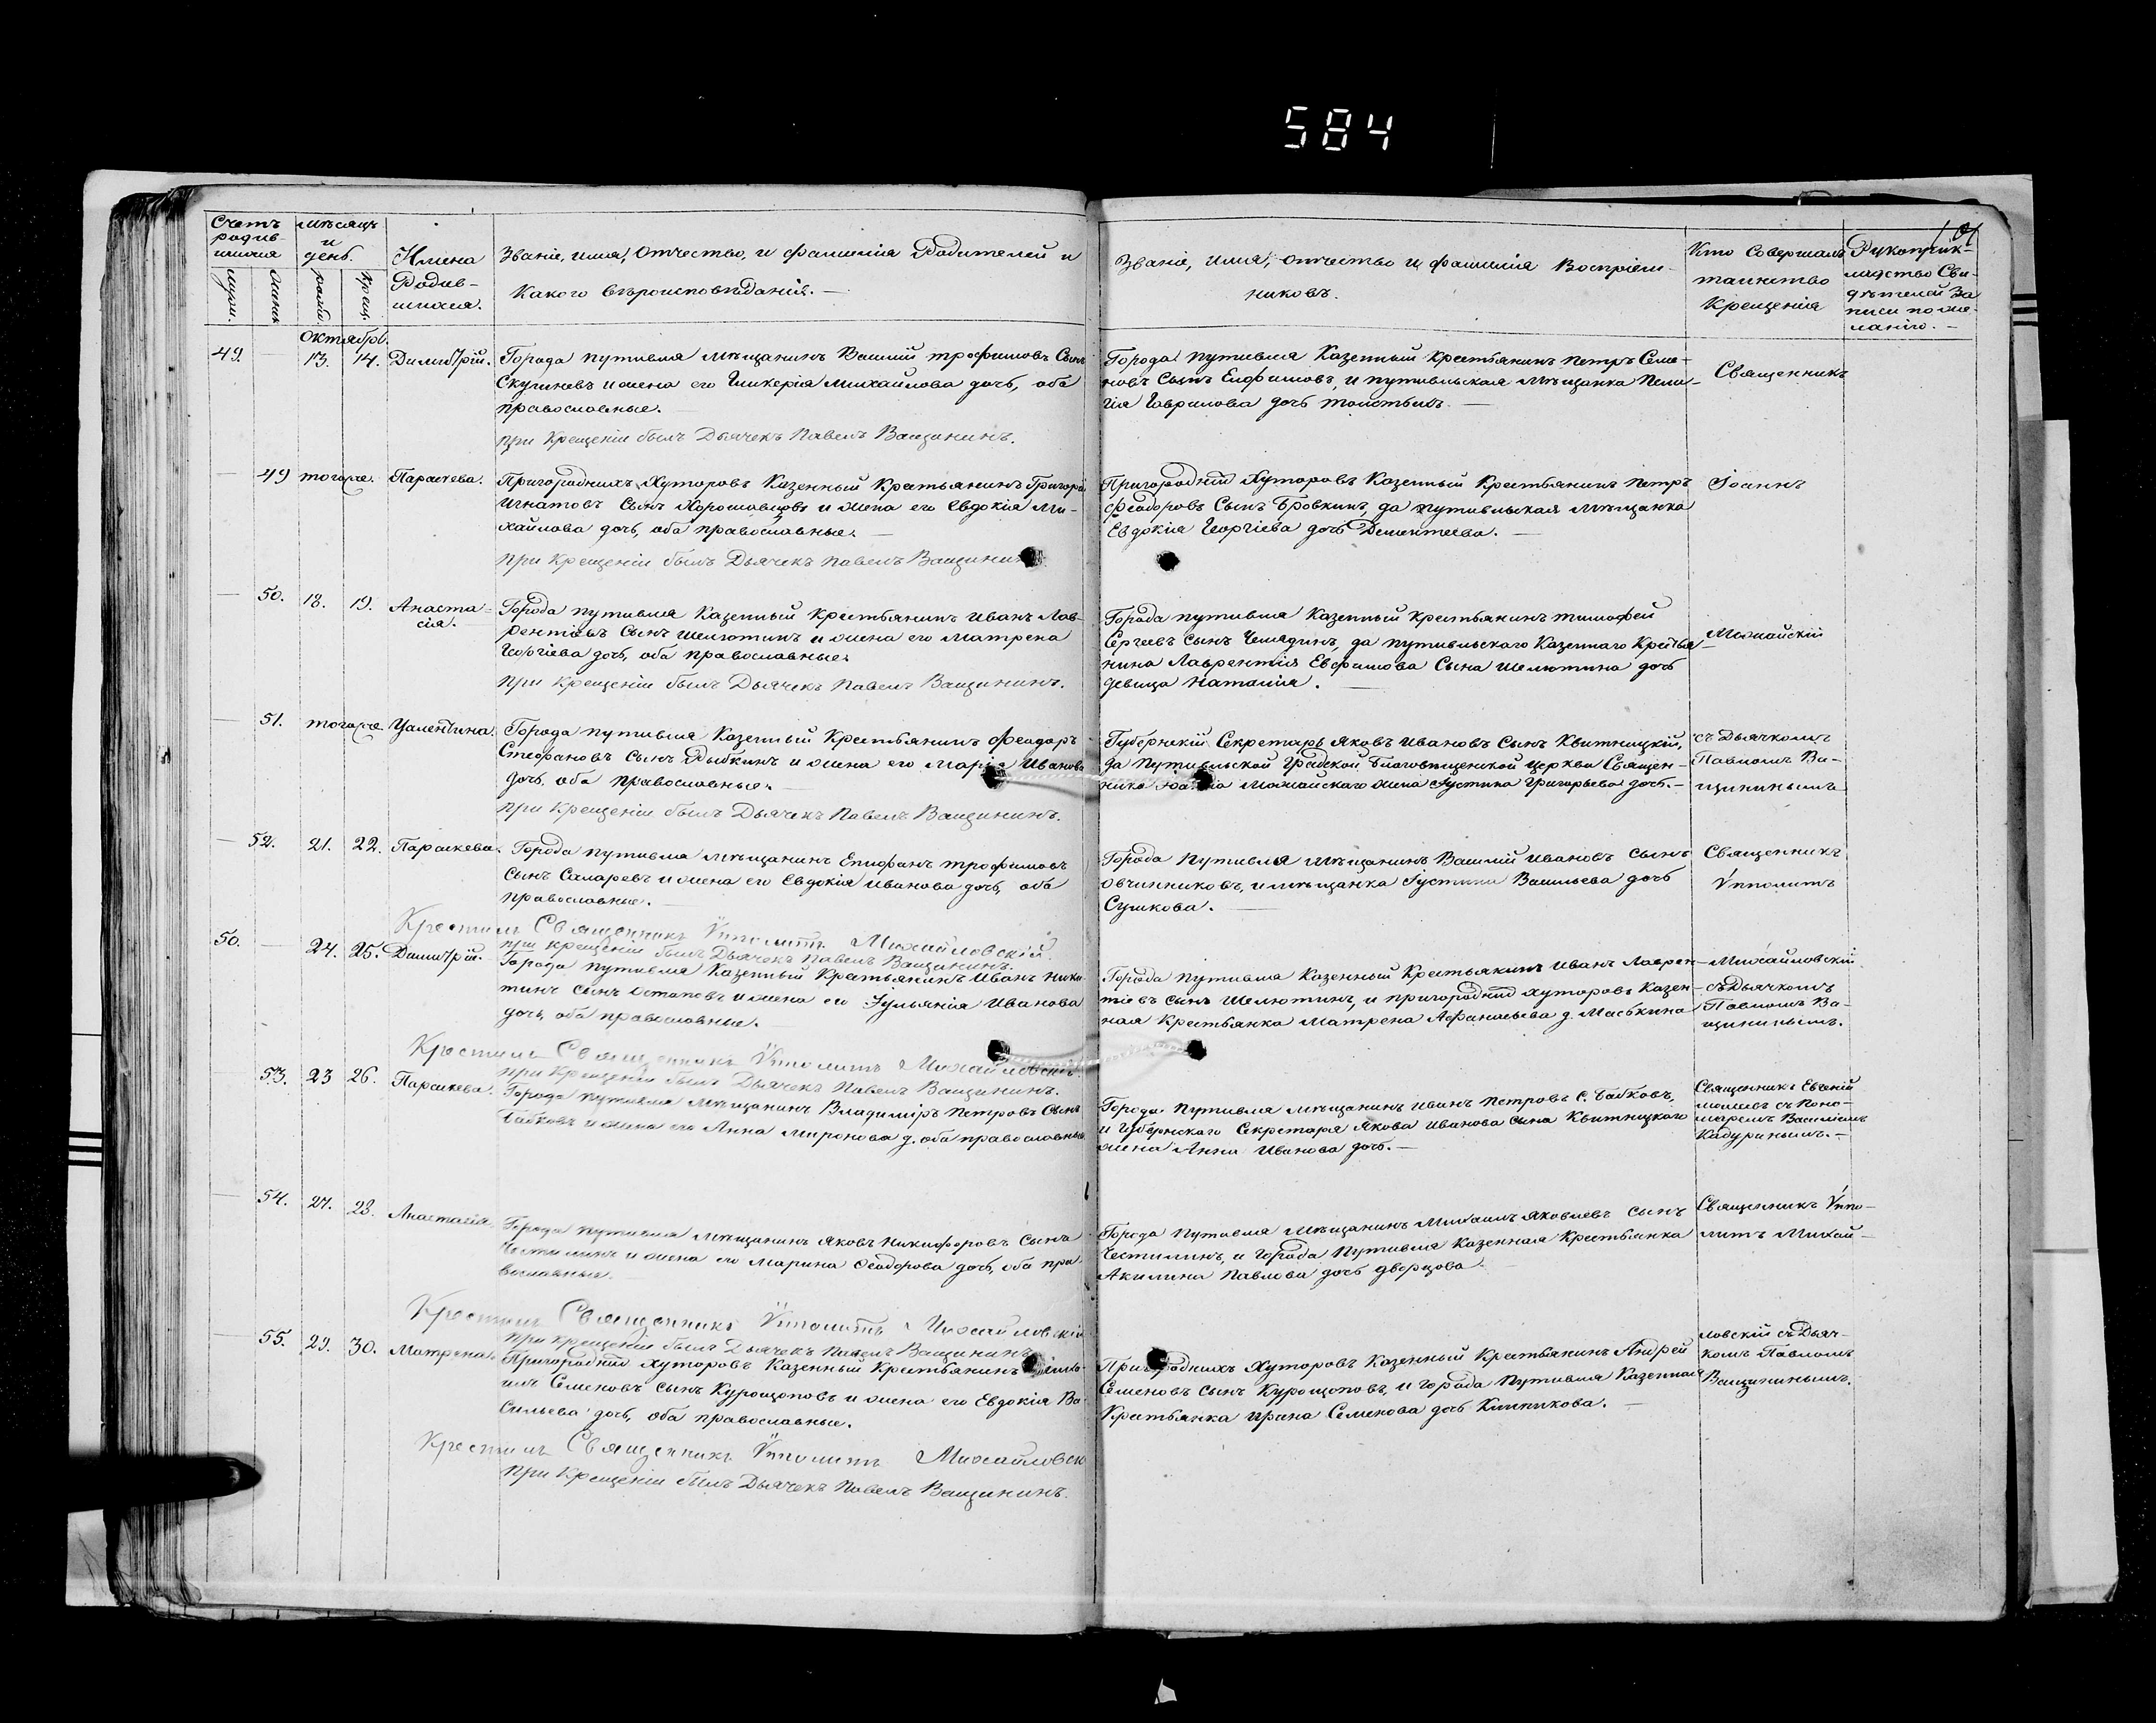 584
Счетъ родив-шихся
муж.
женс.
мѣсяцъ и день.
рожд.
крещ.
Имена Родив-шихся.
Званіе, имя, отчество, и фамилія Родителей и
Какого вѣроисповѣданія. —
Званіе, имя, отчество и фамилія Воспріем-
никовъ.
Кто Совершалъ
таинство
Крещенія
Рукоприк-
ладство Сви-
дѣтелей За
писи по же-
ланію. —
октябрь.
49. 13. 14. Димитрій.
Города путивля мѣщанинъ Василій трофимовъ Сынъ
и жена его Гликерія Михайлова дочь, оба
православные.
при Крещеніи былъ Дьячекъ Павелъ Ващининъ.
Города путивля Казенный крестьянинъ петръ Семе-
новъ Сынъ Ефимовъ, и путивльская мѣщанка Пела-
гія Гаврилова дочь толстыхъ. —
Священникъ
— 49 тогоже. Параскева.
Пригородныхъ Хуторовъ Казенный Крестьянинъ Григорій
Игнатовъ Сынъ и жена его Евдокія Ми-
хайлова дочь, оба православные. —
при Крещеніи былъ Дьячекъ Павелъ Ващинин
Пригородныхъ Хуторовъ Казенный Крестьянинъ петръ
Феодоровъ Сынъ Бровкинъ, да путивльская мѣщанка
Евдокія Георгіева дочь Дементеева. —
Іоаннъ
— 50. 18. 19. Анаста-
сія.
Города путивля Казенный крестьянинъ иванъ Лав-
рентіевъ Сынъ шелютинъ и жена его матрена
Георгіева дочь, оба православные.
при крещеніи былъ Дьячекъ Павелъ Ващининъ.
Города путивля Казенный крестьянинъ тимофей
Сергеевъ сынъ Чемядинъ, да путивльскаго Казеннаго Крестья-
нина Лаврентія Евфимова Сына шелютина дочь
девица Наталія. —
Можайскій
— 51. тогоже
Города путивля Казенный Крестьянинъ Феодоръ
Стефановъ сынъ Рыбкинъ и жена его Марія Иванова
дочь, оба православные. —
при Крещеніи былъ Дьячекъ Павелъ Ващининъ.
Губернскій Секретарь Яковъ Ивановъ Сынъ Квитницкій,
да Путивльской Градской Благовѣщенской церкви Священ-
ника Іоанна Можайскаго жена Іустина Григорьева дочь. —
съ Дьячкомъ
Павломъ Ва-
щининымъ
— 52. 21. 22. Параскева.
Города путивля мѣщанинъ Епифанъ трофимовъ
Сынъ Сапаревъ и жена его Евдокія Иванова дочь, оба
православные. —
Крестилъ Священникъ Ѵпполитъ Михайловскій
при крещеніи былъ Дьячекъ Павелъ Ващининъ.
Города Путивля мѣщанинъ Василій Ивановъ сынъ
Овчинниковъ, и мѣщанка Іустина Васильева дочь
Сушкова. —
Священникъ
Ѵпполитъ
50. — 24. 25. Димитрій.
Города путивля Казенный Крестьянинъ Иванъ Ники-
тинъ сынъ Остапевъ и жена его Іуліанія Иванова
дочь, оба православные.
Крестилъ Священникъ Ѵпполитъ Михайловскій
при Крещеніи былъ Дьячекъ Павелъ Ващининъ.
Города Путивля Казенный Крестьянинъ Иванъ Лаврен-
тіевъ сынъ Шелютинъ, и пригородныхъ хуторовъ Казен-
ная Крестьянка Матрена Афанасьева д. Маськина
Михайловскій
съ Дьячкомъ
Павломъ Ва-
щининымъ.
— 53. 23 26. Параскева.
Города путивля мѣщанинъ Владиміръ Петровъ Сынъ
Бабковъ и жена его Анна Миронова д. оба православные
Города Путивля мѣщанинъ Иванъ Петровъ С. Бабковъ,
и Губернскаго Секретаря Якова Иванова Сына Квитницкаго
жена Анна Иванова дочь. —
Священникъ Евгеній
съ Поно-
маремъ Василіемъ
Кадуринымъ. —
— 54. 27. 28. Анастасія.
Города путивля мѣщанинъ Яковъ Никифоровъ Сынъ
Честилинъ и жена его Марина Феодорова дочь, оба пра-
вославные.
Крестилъ Священникъ Ѵпполитъ Михайловскій
при крещеніи былъ Дьячекъ Павелъ Ващининъ
Города Путивля Мѣщанинъ Михаилъ Яковлевъ сынъ
Честилинъ, и города Путивля Казенная Крестьянка
Акилина Павлова дочь Дворцова. —
Священникъ Ѵппо-
литъ Михай-
— 55. 29. 30. Матрена.
Пригородныхъ хуторовъ Казенный Крестьянинъ
Семеновъ сынъ Курощоповъ и жена его Евдокія Ва-
сильева дочь, оба православные.
Крестилъ Священникъ Ѵпполитъ Михайловскі
при Крещеніи былъ Дьячекъ Павелъ Ващининъ.
Пригородныхъ Хуторовъ Казенный Крестьянинъ Андрей
Семеновъ сынъ Курощоповъ, и города Путивля Казенная
Крестьянка Ирина Семенова дочь Клипикова. —
ловскій съ Дьяч-
комъ Павломъ
Ващининымъ.